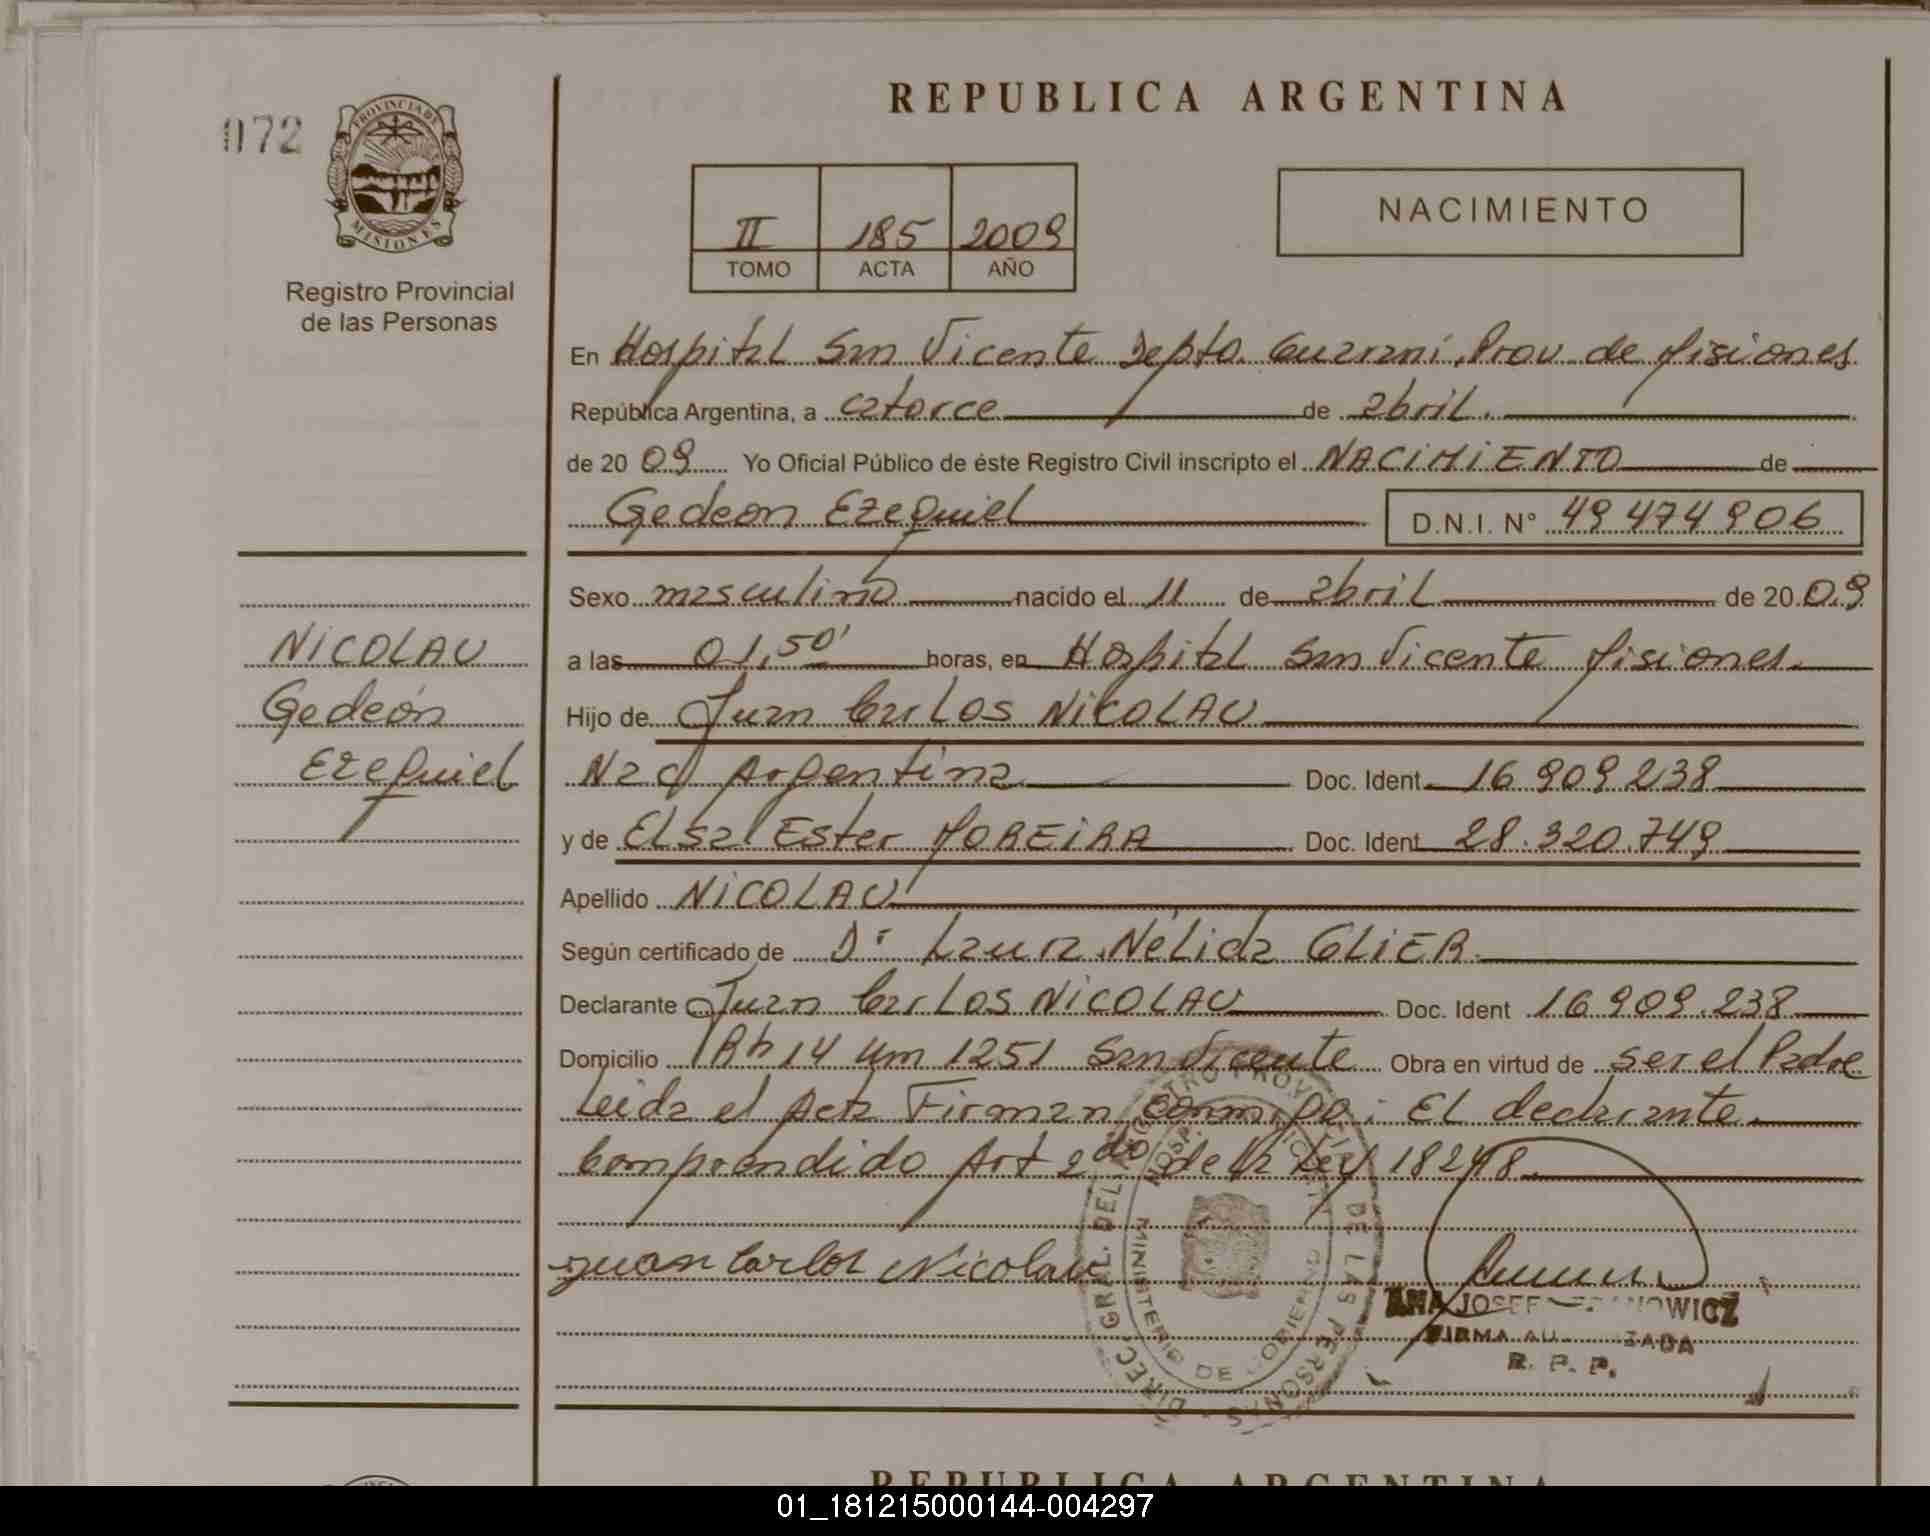 REPUBLICA ARGENTINA
072
PROVINCIA DE
MISIONES
Registro Provincial
de las Personas
II 185 2009
TOMO ACTA AÑO
NACIMIENTO
En Hospital San Vicente Depto. Guaraní, Prov de Misiones
República Argentina, a catorce de abril.
de 2009 Yo Oficial Público de éste Registro Civil inscripto el NACIMIENTO de
Gedeon Ezequiel D.N.I. N° 49 474 906
Sexo masculino nacido el 11 de abril de 2009
NICOLAU
a las 01,50' horas, en Hospital San Vicente Misiones.
Gedeón
Hijo de Juan Carlos NICOLAU
Ezequiel
Nac Argentina Doc. Ident 16 909 238
y de Elsa Ester MOREIRA Doc. Ident 28.320.749
Apellido NICOLAU
Según certificado de Dr Laura Nélida GLIER.
Declarante Juan Carlos NICOLAU Doc. Ident 16 909.238
Domicilio Rta 14 Km 1251 San Vicente Obra en virtud de ser el Padre
Leida el Acta Firman conmigo: El declarante.
Comprendido Art 2do de la Ley 18248.
Juan Carlos Nicolau
DIREC. GRAL. DEL REGISTRO PROVINCIAL DE LAS PERSONAS
MINISTERIO DE GOBIERNO
ANA
FIRMA AUTORIZADA
R. P. P.
REPUBLICA ARGENTINA
01_181215000144-004297